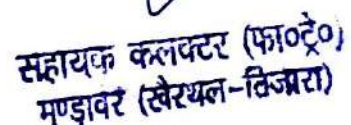 सहायक कलक्टर (फा०ट्रे०)
मण्डावर (खैरथल-तिजारा)